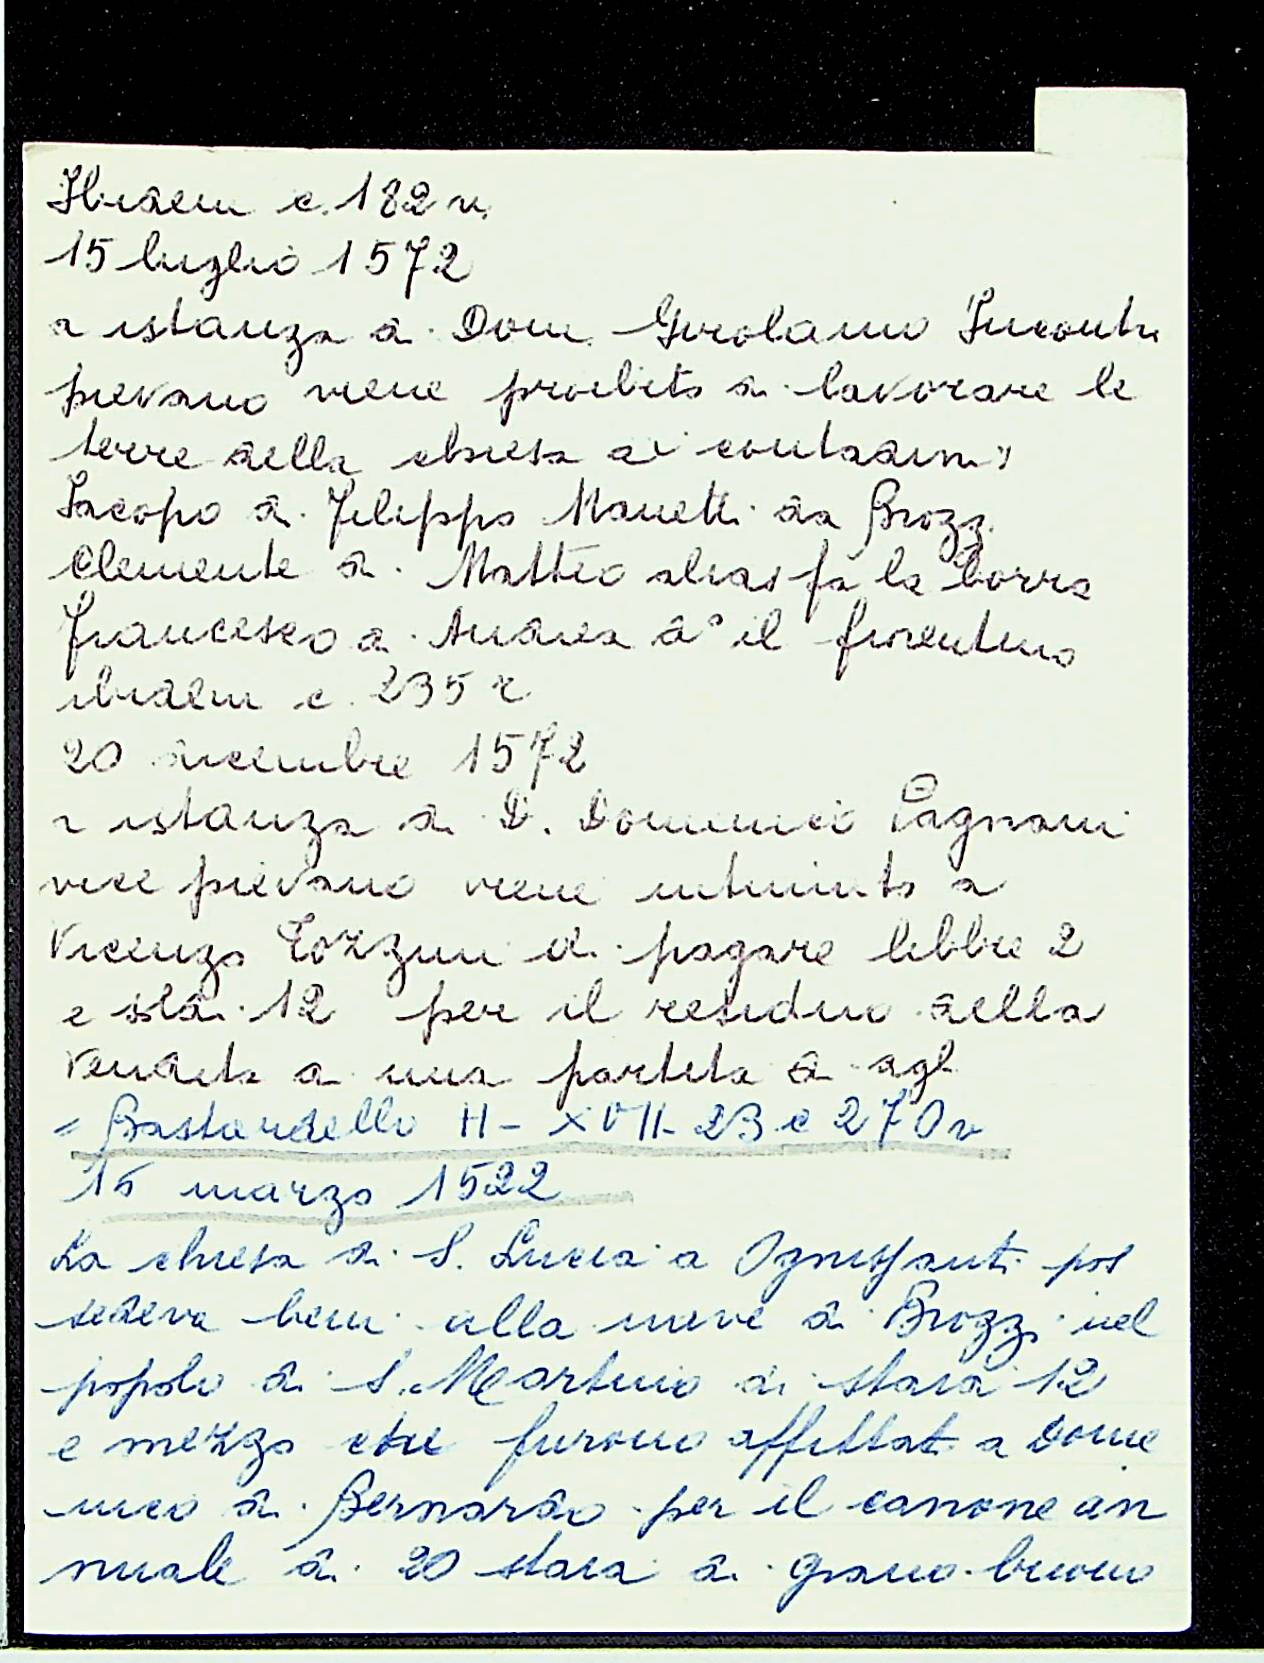 Ibidem c. 182 v.
15 luglio 1572
a istanza di Dom. Girolamo Incontri
pievano viene proibito di lavorare le
terre della chiesa ai contadini
Iacopo di Filippo Manetti da Brozzi
Clemente di Matteo alias fa la borra
Francesco di Andrea d° il fiorentino
ibidem c. 235 r
20 dicembre 1572
a istanza di D. Domenico Pagnani
vice pievano viene intimato a
Vicenzo Tozzini di pagare libbre 2
e sldi. 12 per il residuo della
vendita di una partita di agli
= Bastardello H - XVII - 23 c 270 v
15 marzo 1522
La chiesa di S. Lucia a Ognissanti pos
sedeva beni alla nave di Brozzi nel
popolo di S. Martino di staia 12
e mezzo che furono affittati a Dome
nico di Bernardo per il canone an
nuale di 20 staia di grano buono